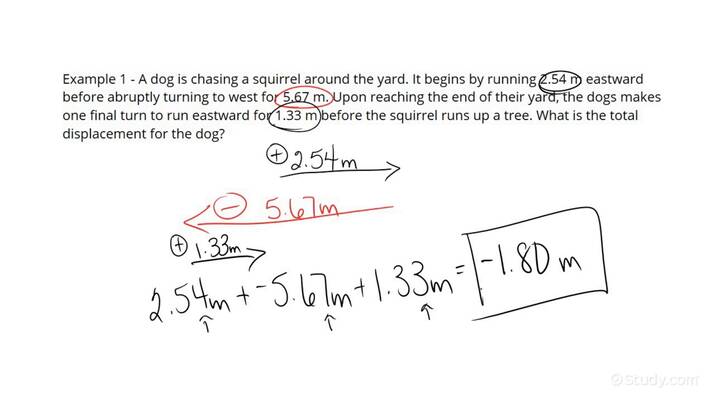 Example 1 - A dog is chasing a squirrel around the yard. It begins by running 2.54 m eastward
before abruptly turning to west for 5.67 m. Upon reaching the end of their yard, the dogs makes
one final turn to run eastward for 1.33 m before the squirrel runs up a tree. What is the total
displacement for the dog?
+ 2.54m
- 5.67m
+ 1.33m
2.54m + -5.67m + 1.33m = -1.80 m
Study.com